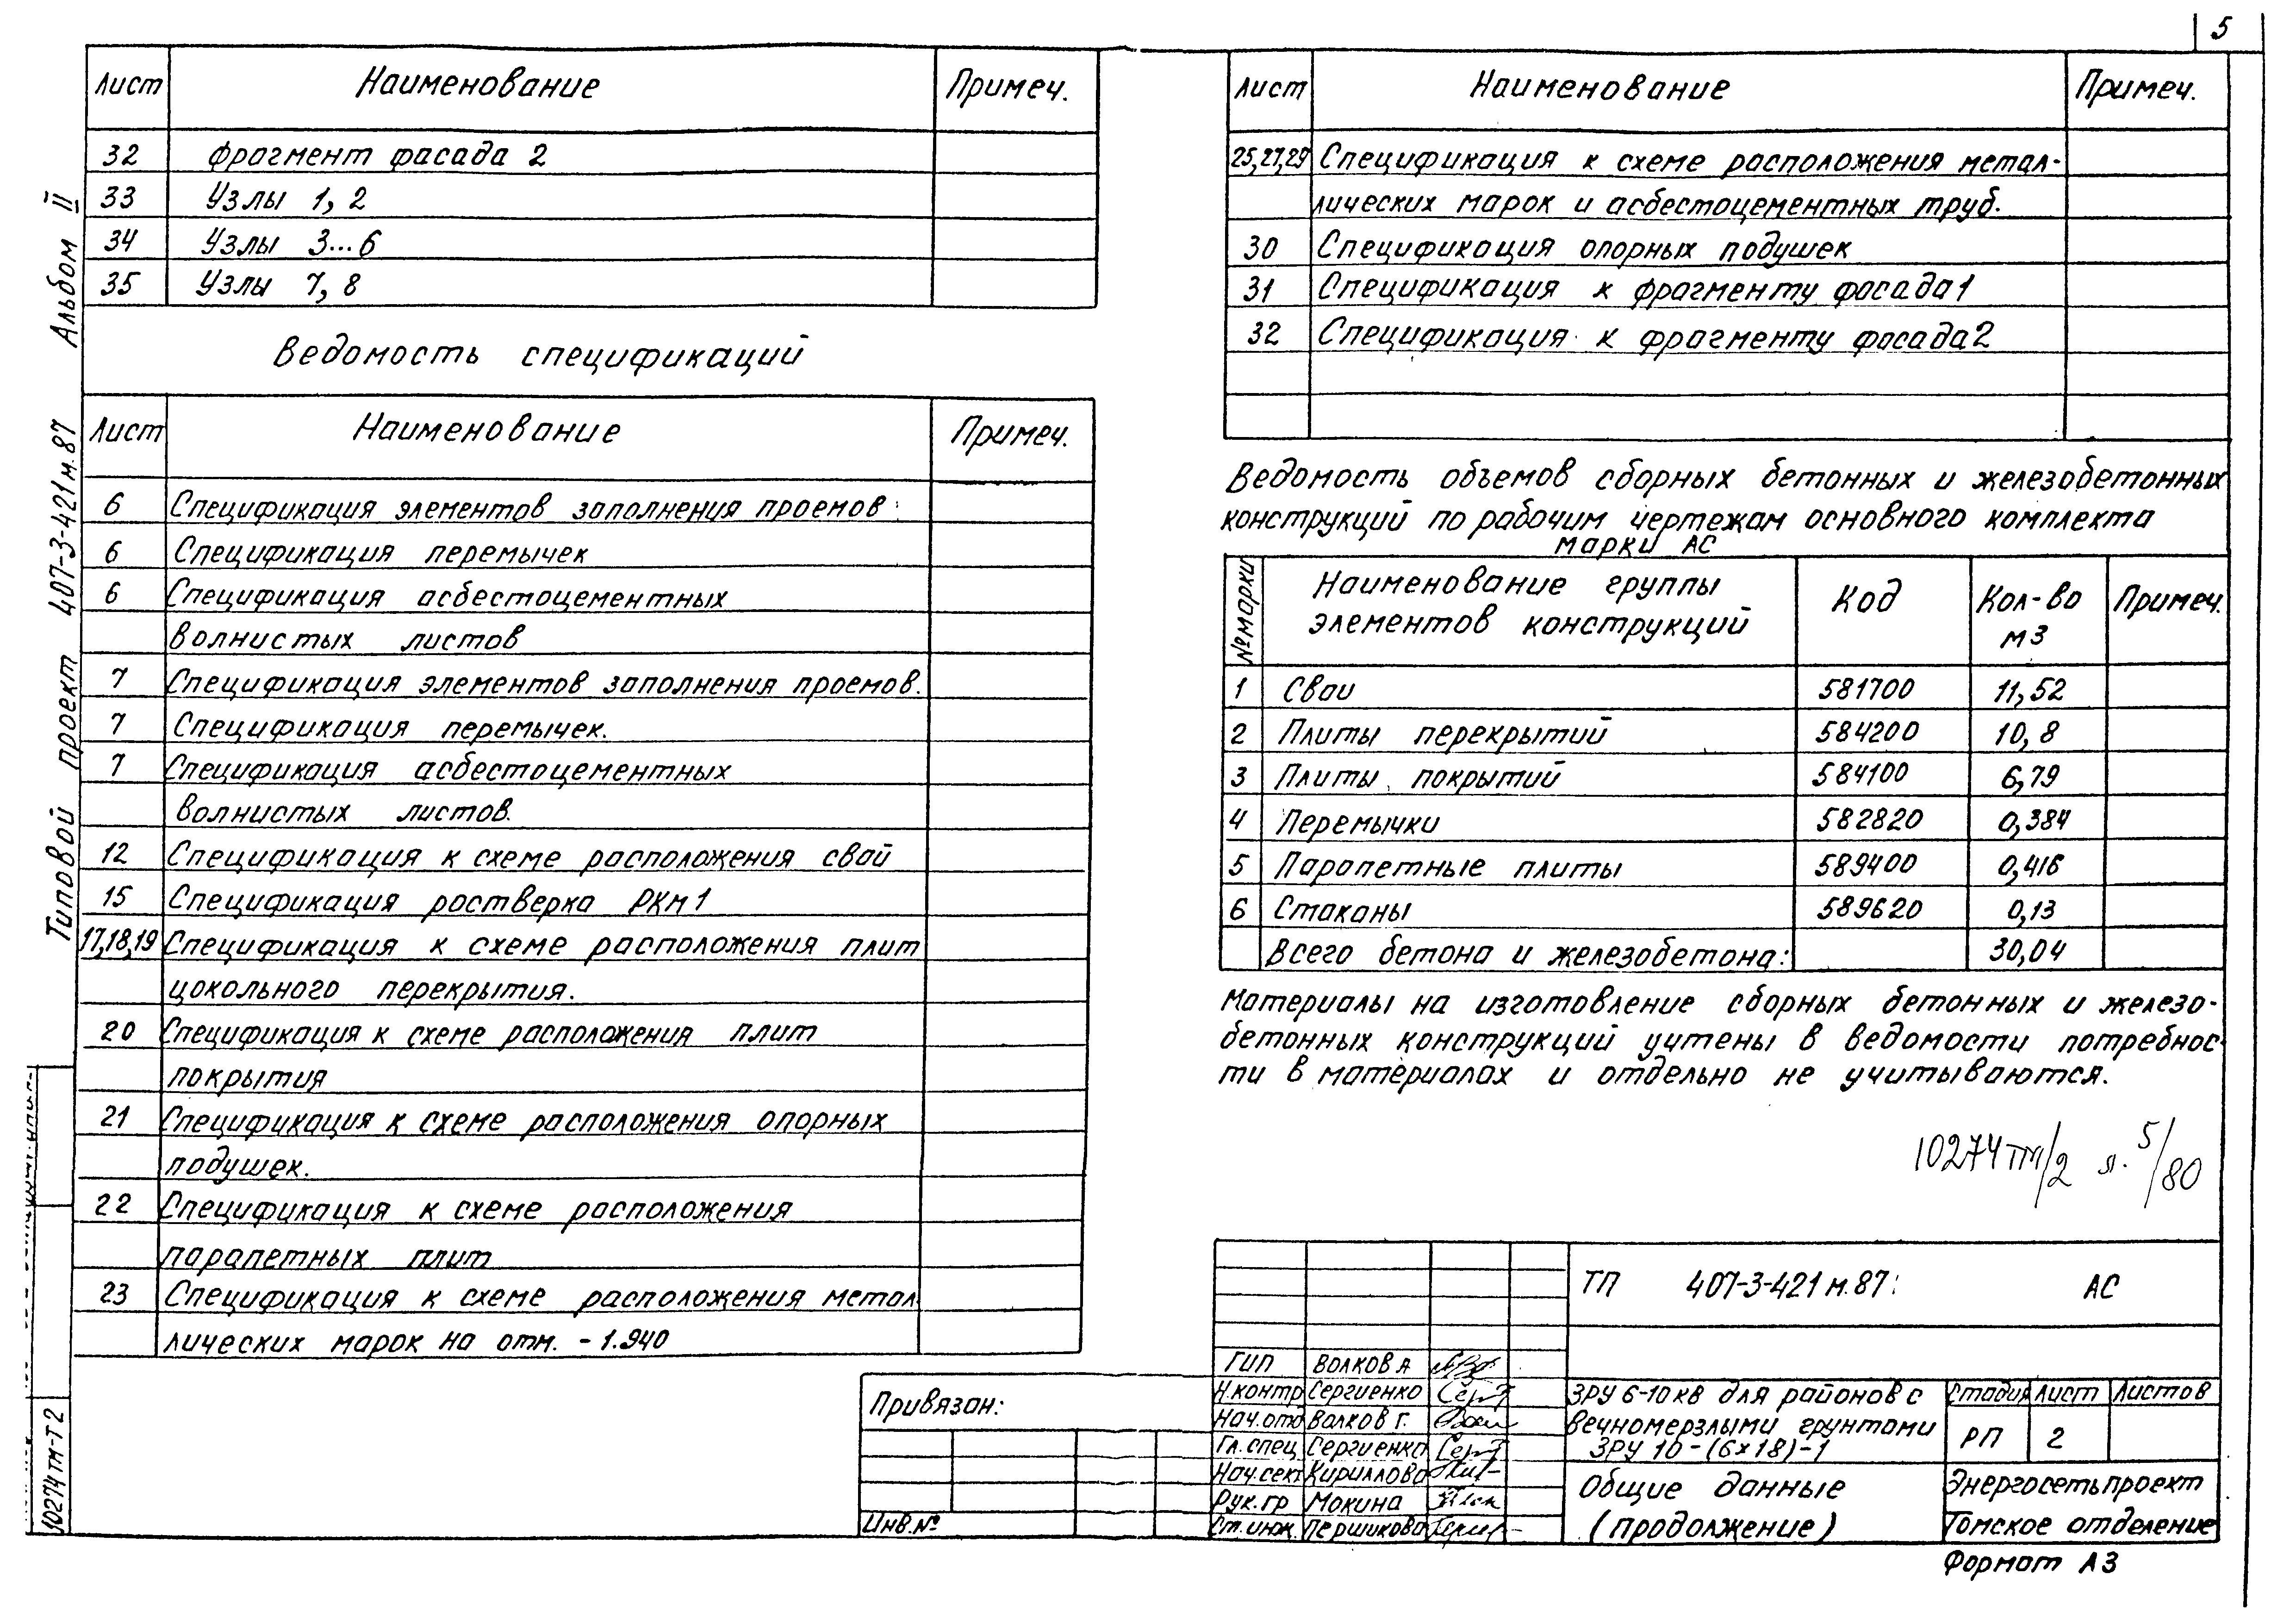 5
Альбом II
Типовой проект 407-3-421м.87
10274ТМ-Т2
Лист Наименование Примеч.
32 Фрагмент фасада 2
33 Узлы 1, 2
34 Узлы 3...6
35 Узлы 7, 8
Ведомость спецификаций
Лист Наименование Примеч.
6 Спецификация элементов заполнения проемов
6 Спецификация перемычек
6 Спецификация асбестоцементных
волнистых листов
7 Спецификация элементов заполнения проемов.
7 Спецификация перемычек.
7 Спецификация асбестоцементных
волнистых листов.
12 Спецификация к схеме расположения свай
15 Спецификация ростверка РКм1
17,18,19 Спецификация к схеме расположения плит
цокольного перекрытия.
20 Спецификация к схеме расположения плит
покрытия
21 Спецификация к схеме расположения опорных
подушек.
22 Спецификация к схеме расположения
парапетных плит
23 Спецификация к схеме расположения метал
лических марок на отм. -1.940
Лист Наименование Примеч.
25,27,29 Спецификация к схеме расположения метал-
лических марок и асбестоцементных труб.
30 Спецификация опорных подушек
31 Спецификация к фрагменту фасада 1
32 Спецификация к фрагменту фасада 2
Ведомость объемов сборных бетонных и железобетонных
конструкций по рабочим чертежам основного комплекта
марки АС
№ марки Наименование группы элементов конструкций Код Кол-во м3 Примеч.
1 Сваи 581700 11,52
2 Плиты перекрытий 584200 10,8
3 Плиты покрытий 584100 6,79
4 Перемычки 582820 0,384
5 Парапетные плиты 589400 0,416
6 Стаканы 589620 0,13
Всего бетона и железобетона: 30,04
Материалы на изготовление сборных бетонных и железо-
бетонных конструкций учтены в ведомости потребнос-
ти в материалах и отдельно не учитываются.
10274ТМ/2 л. 5/80
Привязан:
Инв.№
ТП 407-3-421м.87 АС
ГИП Волков А
Н.контр Сергиенко
Нач.отд Волков Г.
Гл.спец Сергиенко
Нач.сект Кириллова
Рук.гр Мокина
Ст.инж. Першикова
ЗРУ 6-10кв для районов с
вечномерзлыми грунтами
ЗРУ 10-(6х18)-1
Стадия Лист Листов
РП 2
Общие данные
(продолжение)
Энергосетьпроект
Томское отделение
Формат А3